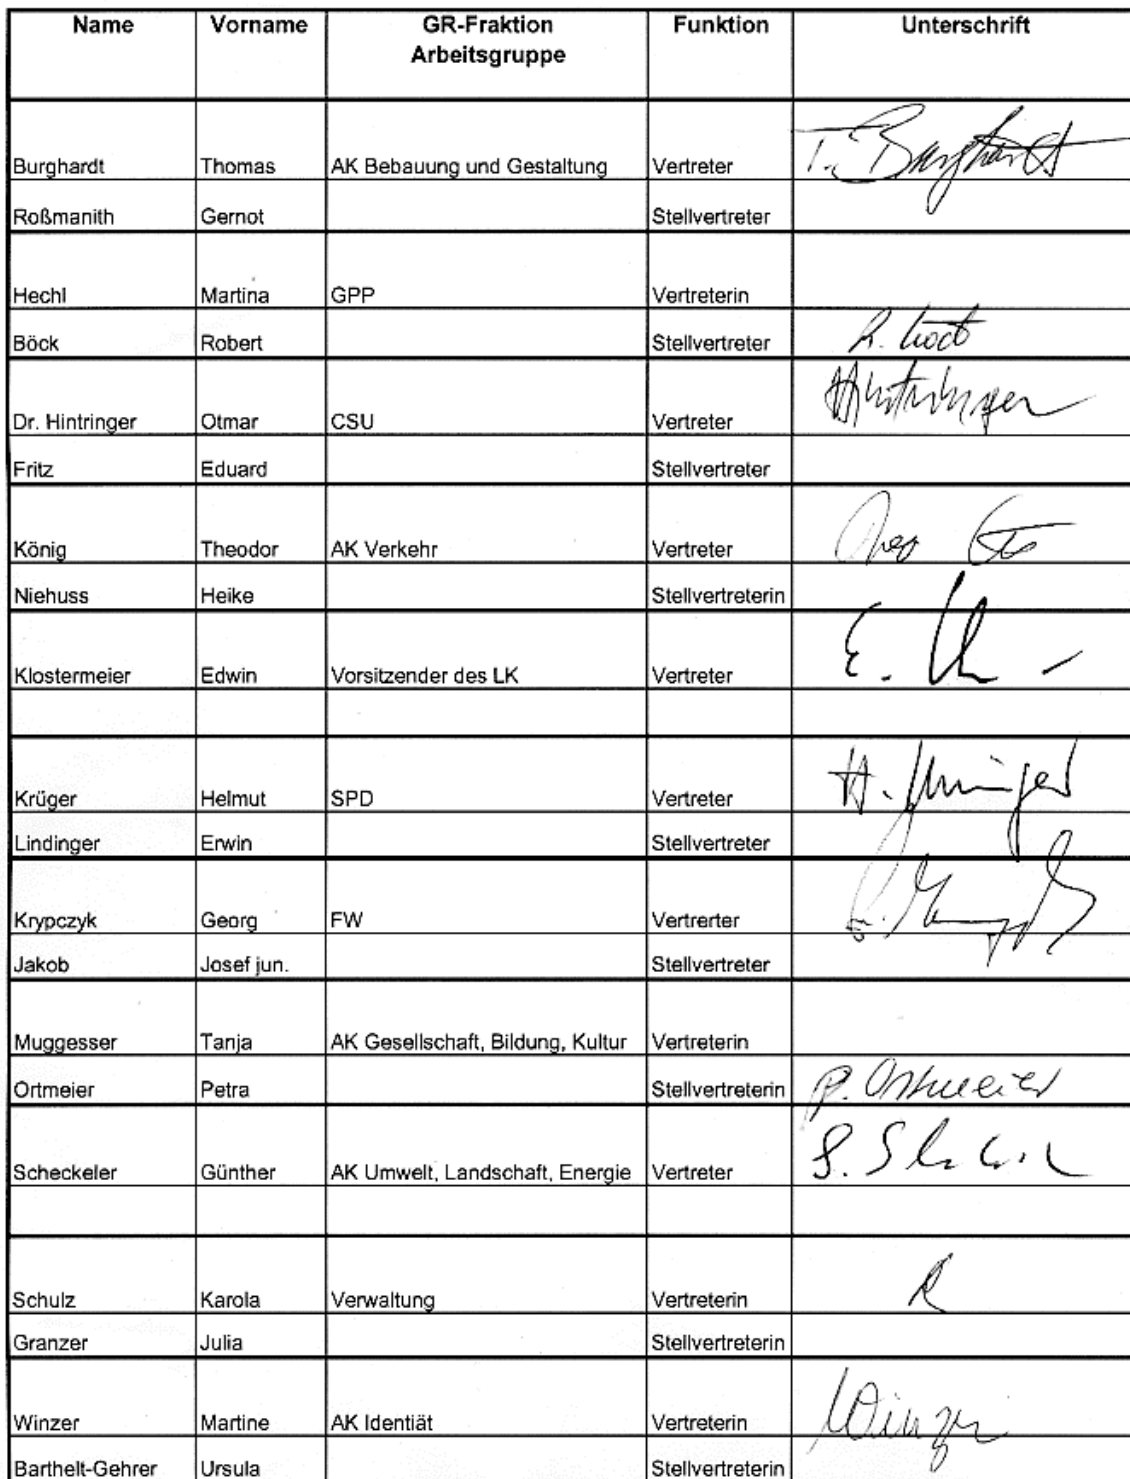 Name Vorname GR-Fraktion Funktion Unterschrift
Arbeitsgruppe
Burghardt Thomas AK Bebauung und Gestaltung Vertreter T. Burghardt
Roßmanith Gernot Stellvertreter
Hechl Martina GPP Vertreterin
Böck Robert Stellvertreter R. Böck
Dr. Hintringer Otmar CSU Vertreter Hintringer
Fritz Eduard Stellvertreter
König Theodor AK Verkehr Vertreter
Niehuss Heike Stellvertreterin
Klostermeier Edwin Vorsitzender des LK Vertreter E.
Krüger Helmut SPD Vertreter H.
Lindinger Erwin Stellvertreter
Krypczyk Georg FW Vertrerter
Jakob Josef jun. Stellvertreter
Muggesser Tanja AK Gesellschaft, Bildung, Kultur Vertreterin
Ortmeier Petra Stellvertreterin P. Ortmeier
Scheckeler Günther AK Umwelt, Landschaft, Energie Vertreter
Schulz Karola Verwaltung Vertreterin
Granzer Julia Stellvertreterin
Winzer Martine AK Identiät Vertreterin Winzer
Barthelt-Gehrer Ursula Stellvertreterin